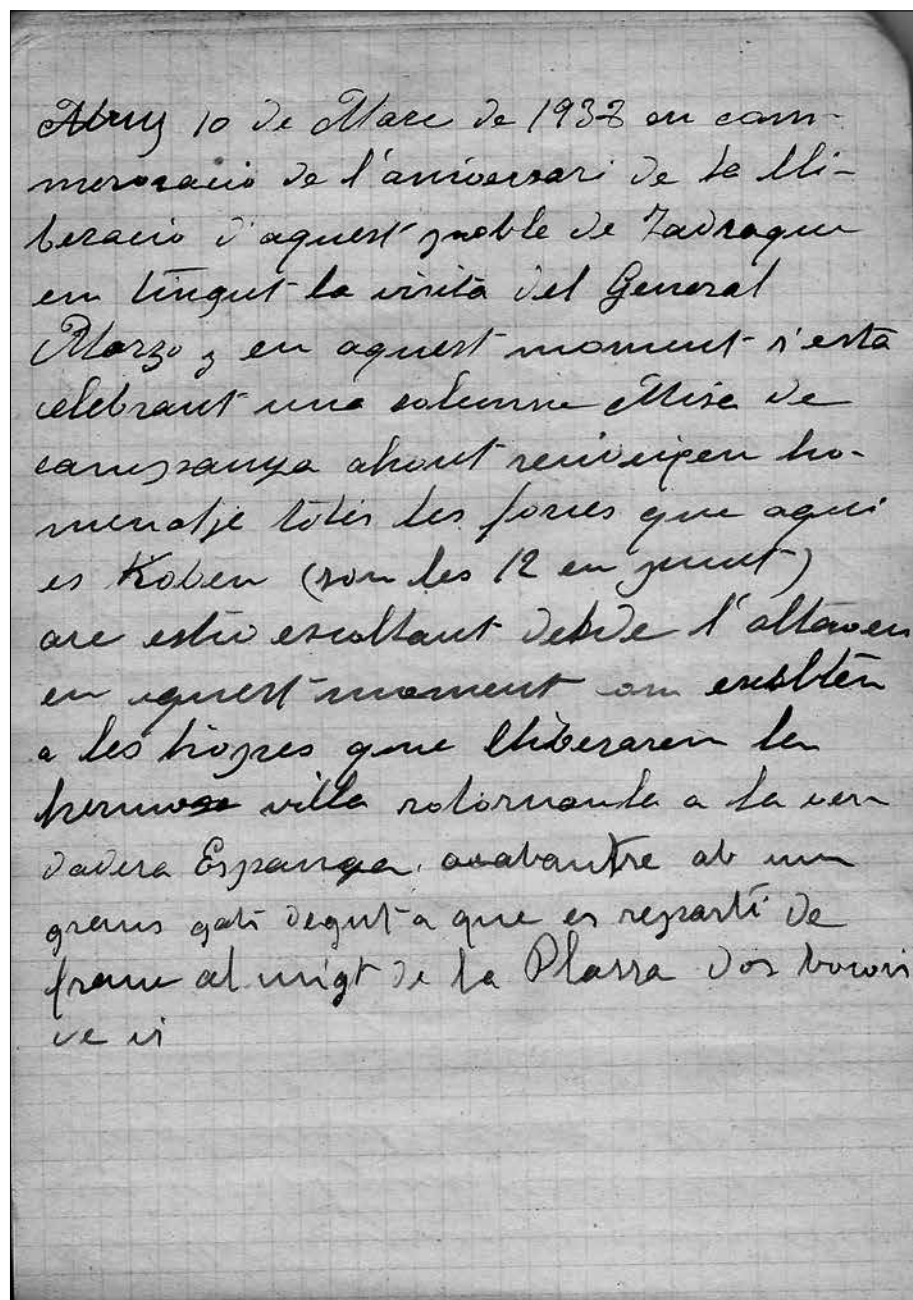 Avuy 10 de Març de 1938 en com-
moracio de l'aniversari de la lli-
beracio d'aquest poble de Jadraque
em tingut la visita del General
Marzo y en aquest moment s'està
celebrant una solemne Misa de
campanya ahont reiveixen ho-
menatje totes les forses que aqui
es troben (son les 12 en punt)
are estic escoltant desde l'altaveu
en aquest moment em
a les tropes que lliberaren la
hermosa villa retornanla a la ver
dadera Espanya. acabantse ab un
grans gati degut a que es reparti de
franc al migt de la Plassa dos bocois
de vi